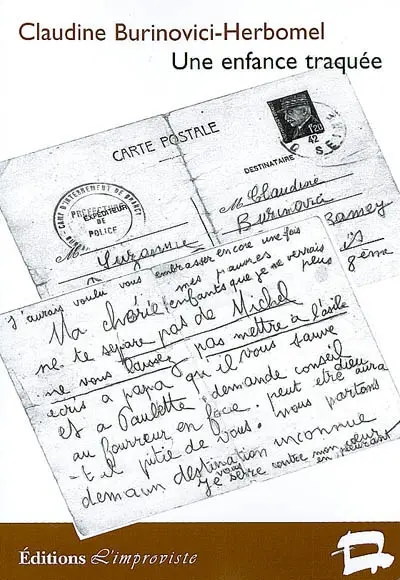 Claudine Burinovici-Herbomel
Une enfance traquée
CARTE POSTALE
1F20
42
DESTINATAIRE
CAMP D'INTERNEMENT DE DRANCY
PREFECTURE
EXPÉDITEUR
DE
POLICE
M
Suzanne
M Claudine
Burinovici
Ramey
Paris
J'aurais voulu vous embrasser encore une fois
mes pauvres
enfants que je ne verrais
plus
Ma chérie
ne te sépare pas de Michel
ne vous laissez pas mettre à l'asile
écris à papa qu'il vous sauve
et à Paulette, demande conseil
au fourreur en face. peut être dieu
aura
-t-il pitié de vous. nous partons
demain destination inconnue
je vous serre contre mon cœur
en pleurant
Éditions L'improviste